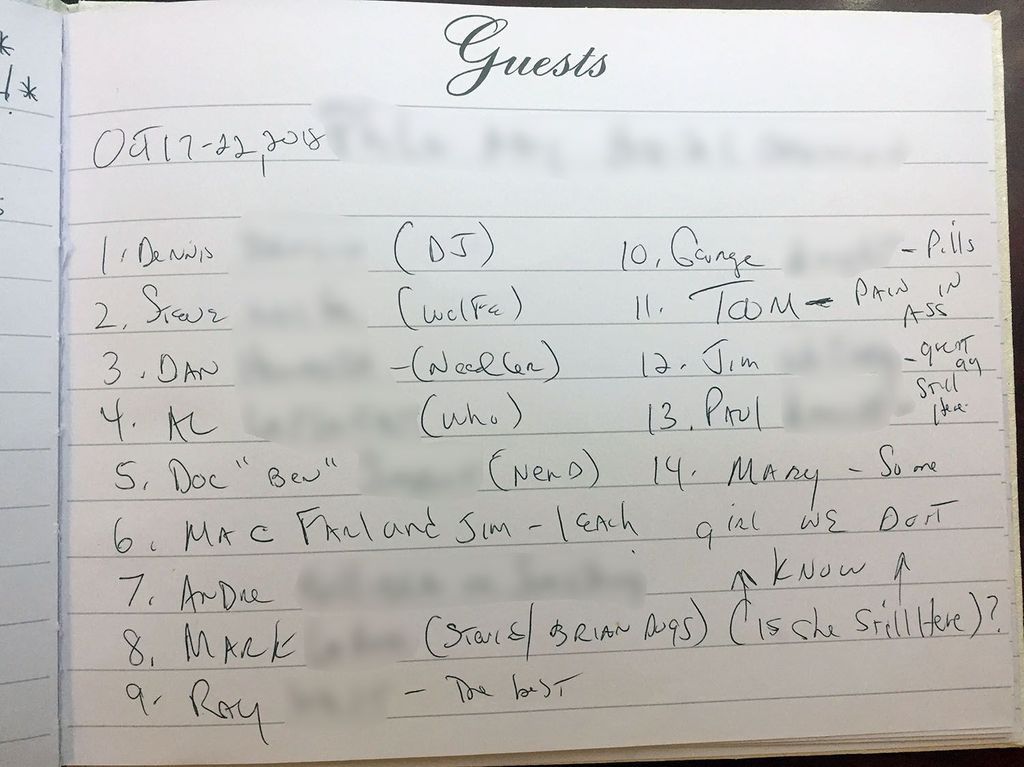 Guests
Oct 17-22, 2018
1. Dennis (DJ)
2. Steve (WolFe)
3. DAN -(Needler)
4. AL (who)
5. Doc "Ben" (NERD)
6. MAC FARland Jim - leach
7. ANDRE
8. MARK (Steve/ BRIAN Dugs)
9. RAY - The best
10. George - Pills
11. TOOM - PAIN IN
ASS
12. Jim - great
13. PAUL Still
Here
14. MARY - Some
girl WE DON'T
↑ KNOW ↑
(is she Still Here)?